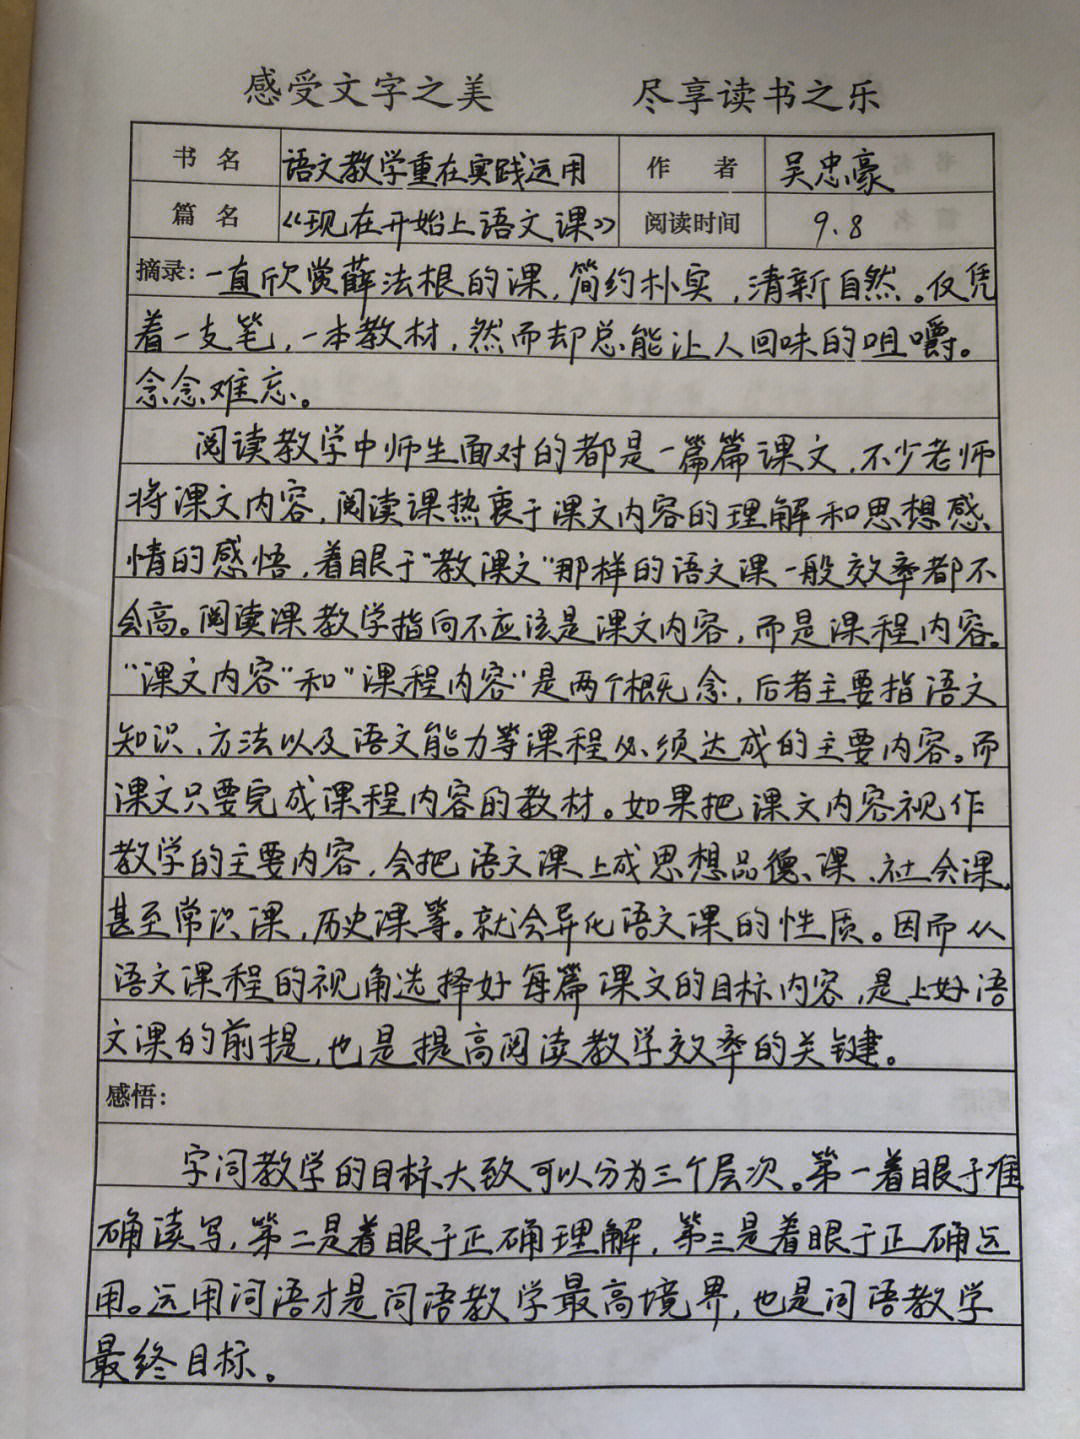 感受文字之美 尽享读书之乐
书 名 语文教学重在实践运用 作 者 吴忠豪
篇 名 《现在开始上语文课》 阅读时间 9.8
摘录：一直欣赏薛法根的课，简约朴实，清新自然。仅凭
着一支笔，一本教材，然而却总能让人回味的咀嚼。
念念难忘。
阅读教学中师生面对的都是一篇篇课文，不少老师
将课文内容，阅读课热衷于课文内容的理解和思想感
情的感悟，着眼于“教课文”那样的语文课一般效率都不
会高。阅读课教学指向不应该是课文内容，而是课程内容。
“课文内容”和“课程内容”是两个概念，后者主要指语文
知识、方法以及语文能力等课程必须达成的主要内容。而
课文只要完成课程内容的教材。如果把课文内容视作
教学的主要内容，会把语文课上成思想品德课、社会课，
甚至常识课，历史课等。就会异化语文课的性质。因而从
语文课程的视角选择好每篇课文的目标内容，是上好语
文课的前提，也是提高阅读教学效率的关键。
感悟：
字词教学的目标大致可以分为三个层次。第一着眼于准
确读写，第二是着眼于正确理解，第三是着眼于正确运
用。运用词语才是词语教学最高境界，也是词语教学
最终目标。